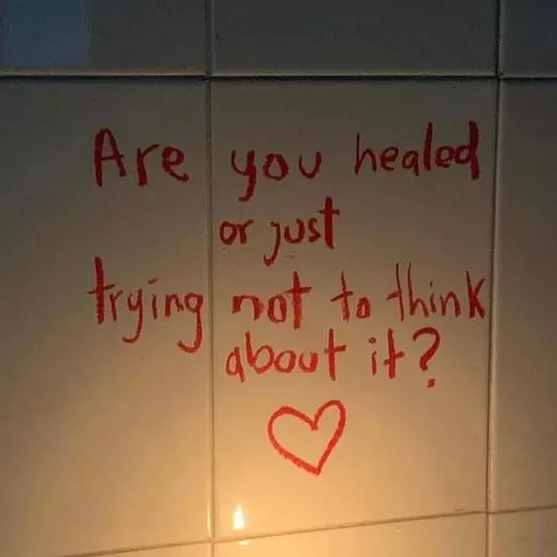 Are you healed
or just
trying not to think
about it?